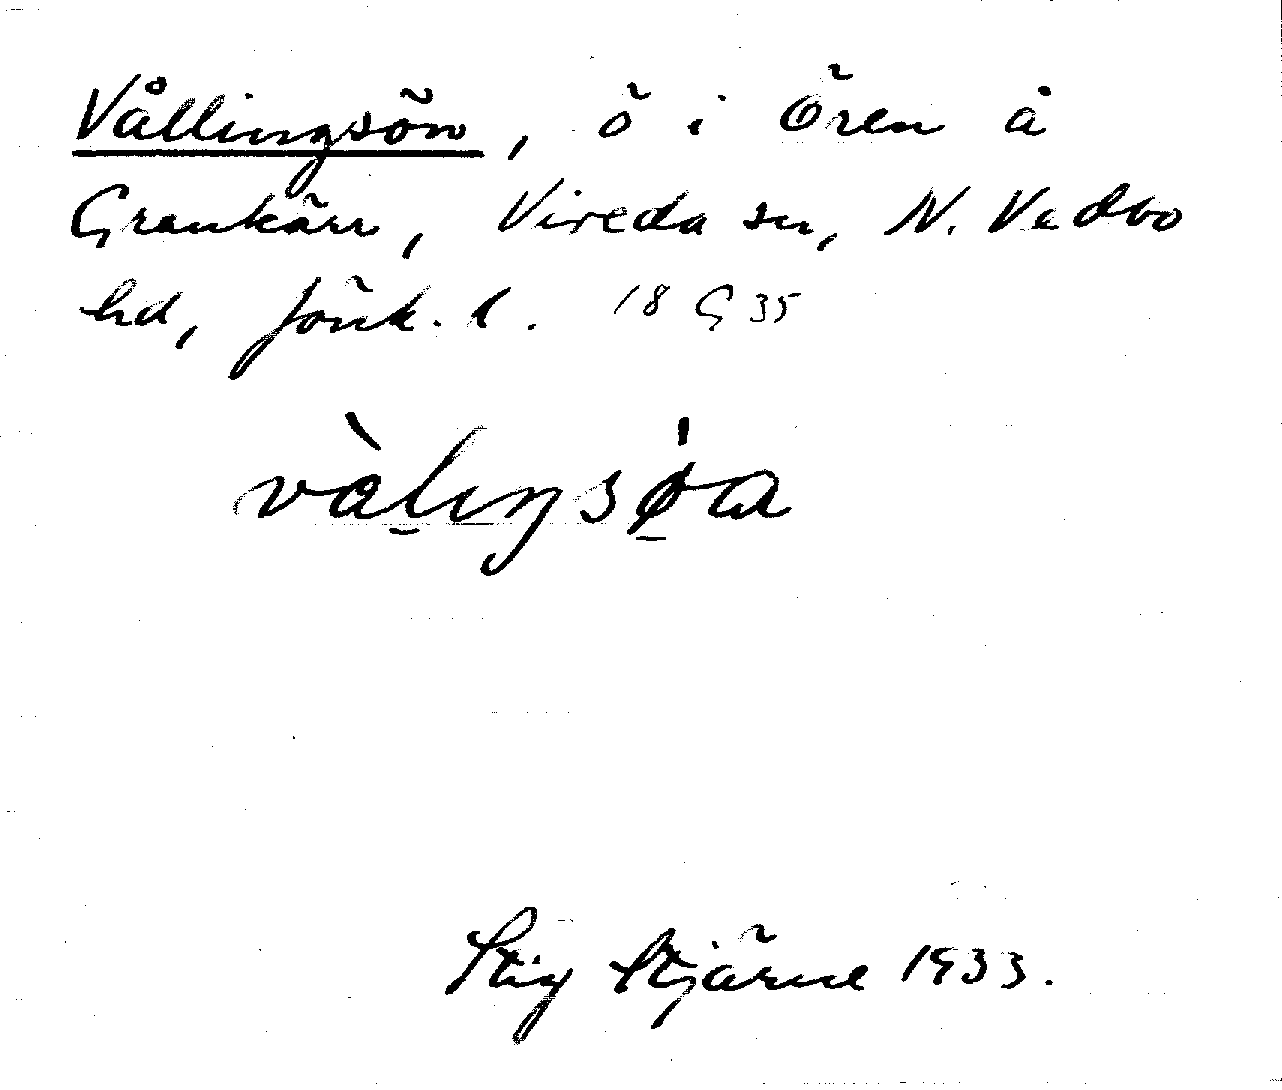 Vållingsön, ö i Ören å
Grankärr, Vireda sn, N. Vedbo
hd, Jönk. l. 18 G 35
vàl̠iŋsø̠̍a
Stig Stjärne 1933.